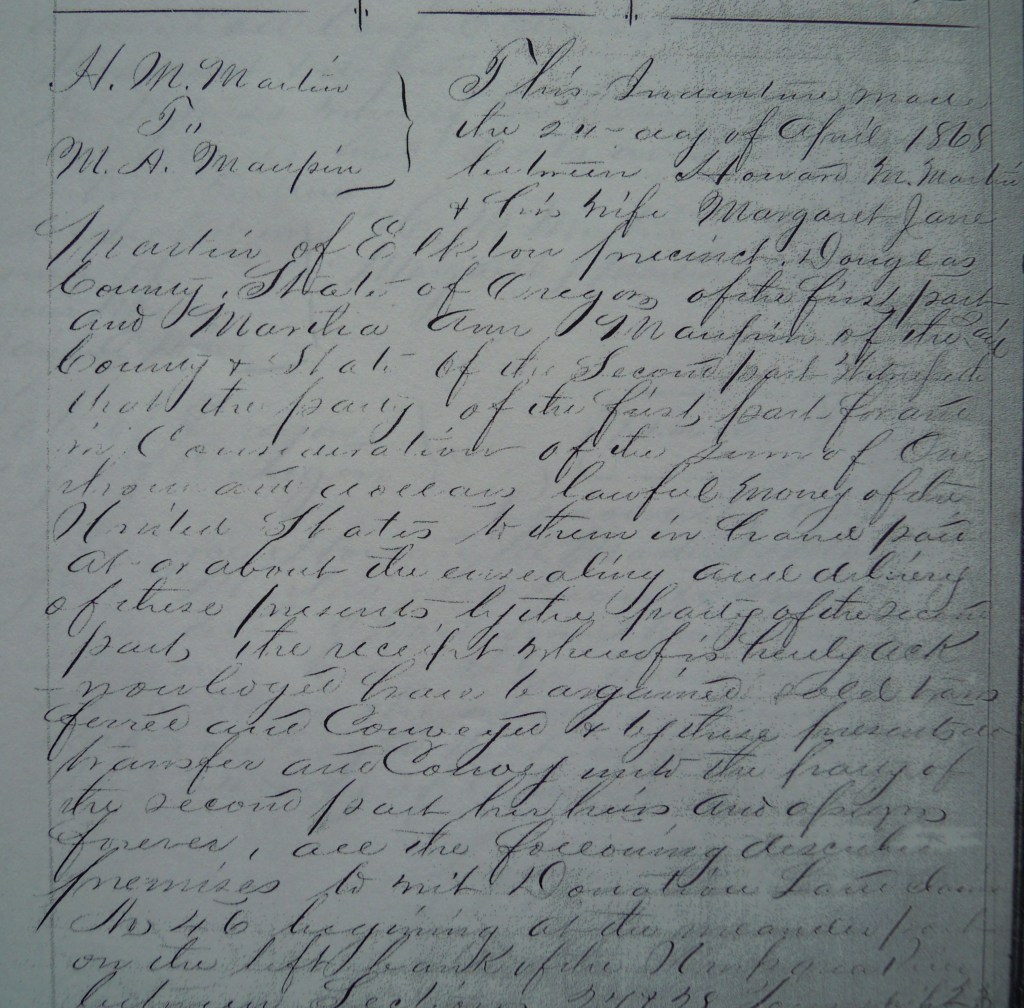 H. M. Martin
To
M. A. Maupin
This Indenture made
the 24- day of April 1868
between Howard M. Martin
& his wife Margaret Jane
Martin of Elkton precinct, Douglas
County, State of Oregon of the first part
and Martha Ann Maupin of the said
County & State of the Second part Witnesseth
that the party of the first part for and
in Consideration of the sum of One
thousand dollars lawful money of the
United States to them in hand paid
at or about the ensealing and delivery
of these presents by the party of the second
part, the receipt whereof is hereby ack
-nowledged have bargained sold trans
ferred and Conveyed & by these presents do
transfer and Convey unto the party of
the second part her heirs and assigns
forever, all the following described
premises to wit Donation Land claim
No 46 beginning at the meander post
on the left bank of the Umpqua
between Sections